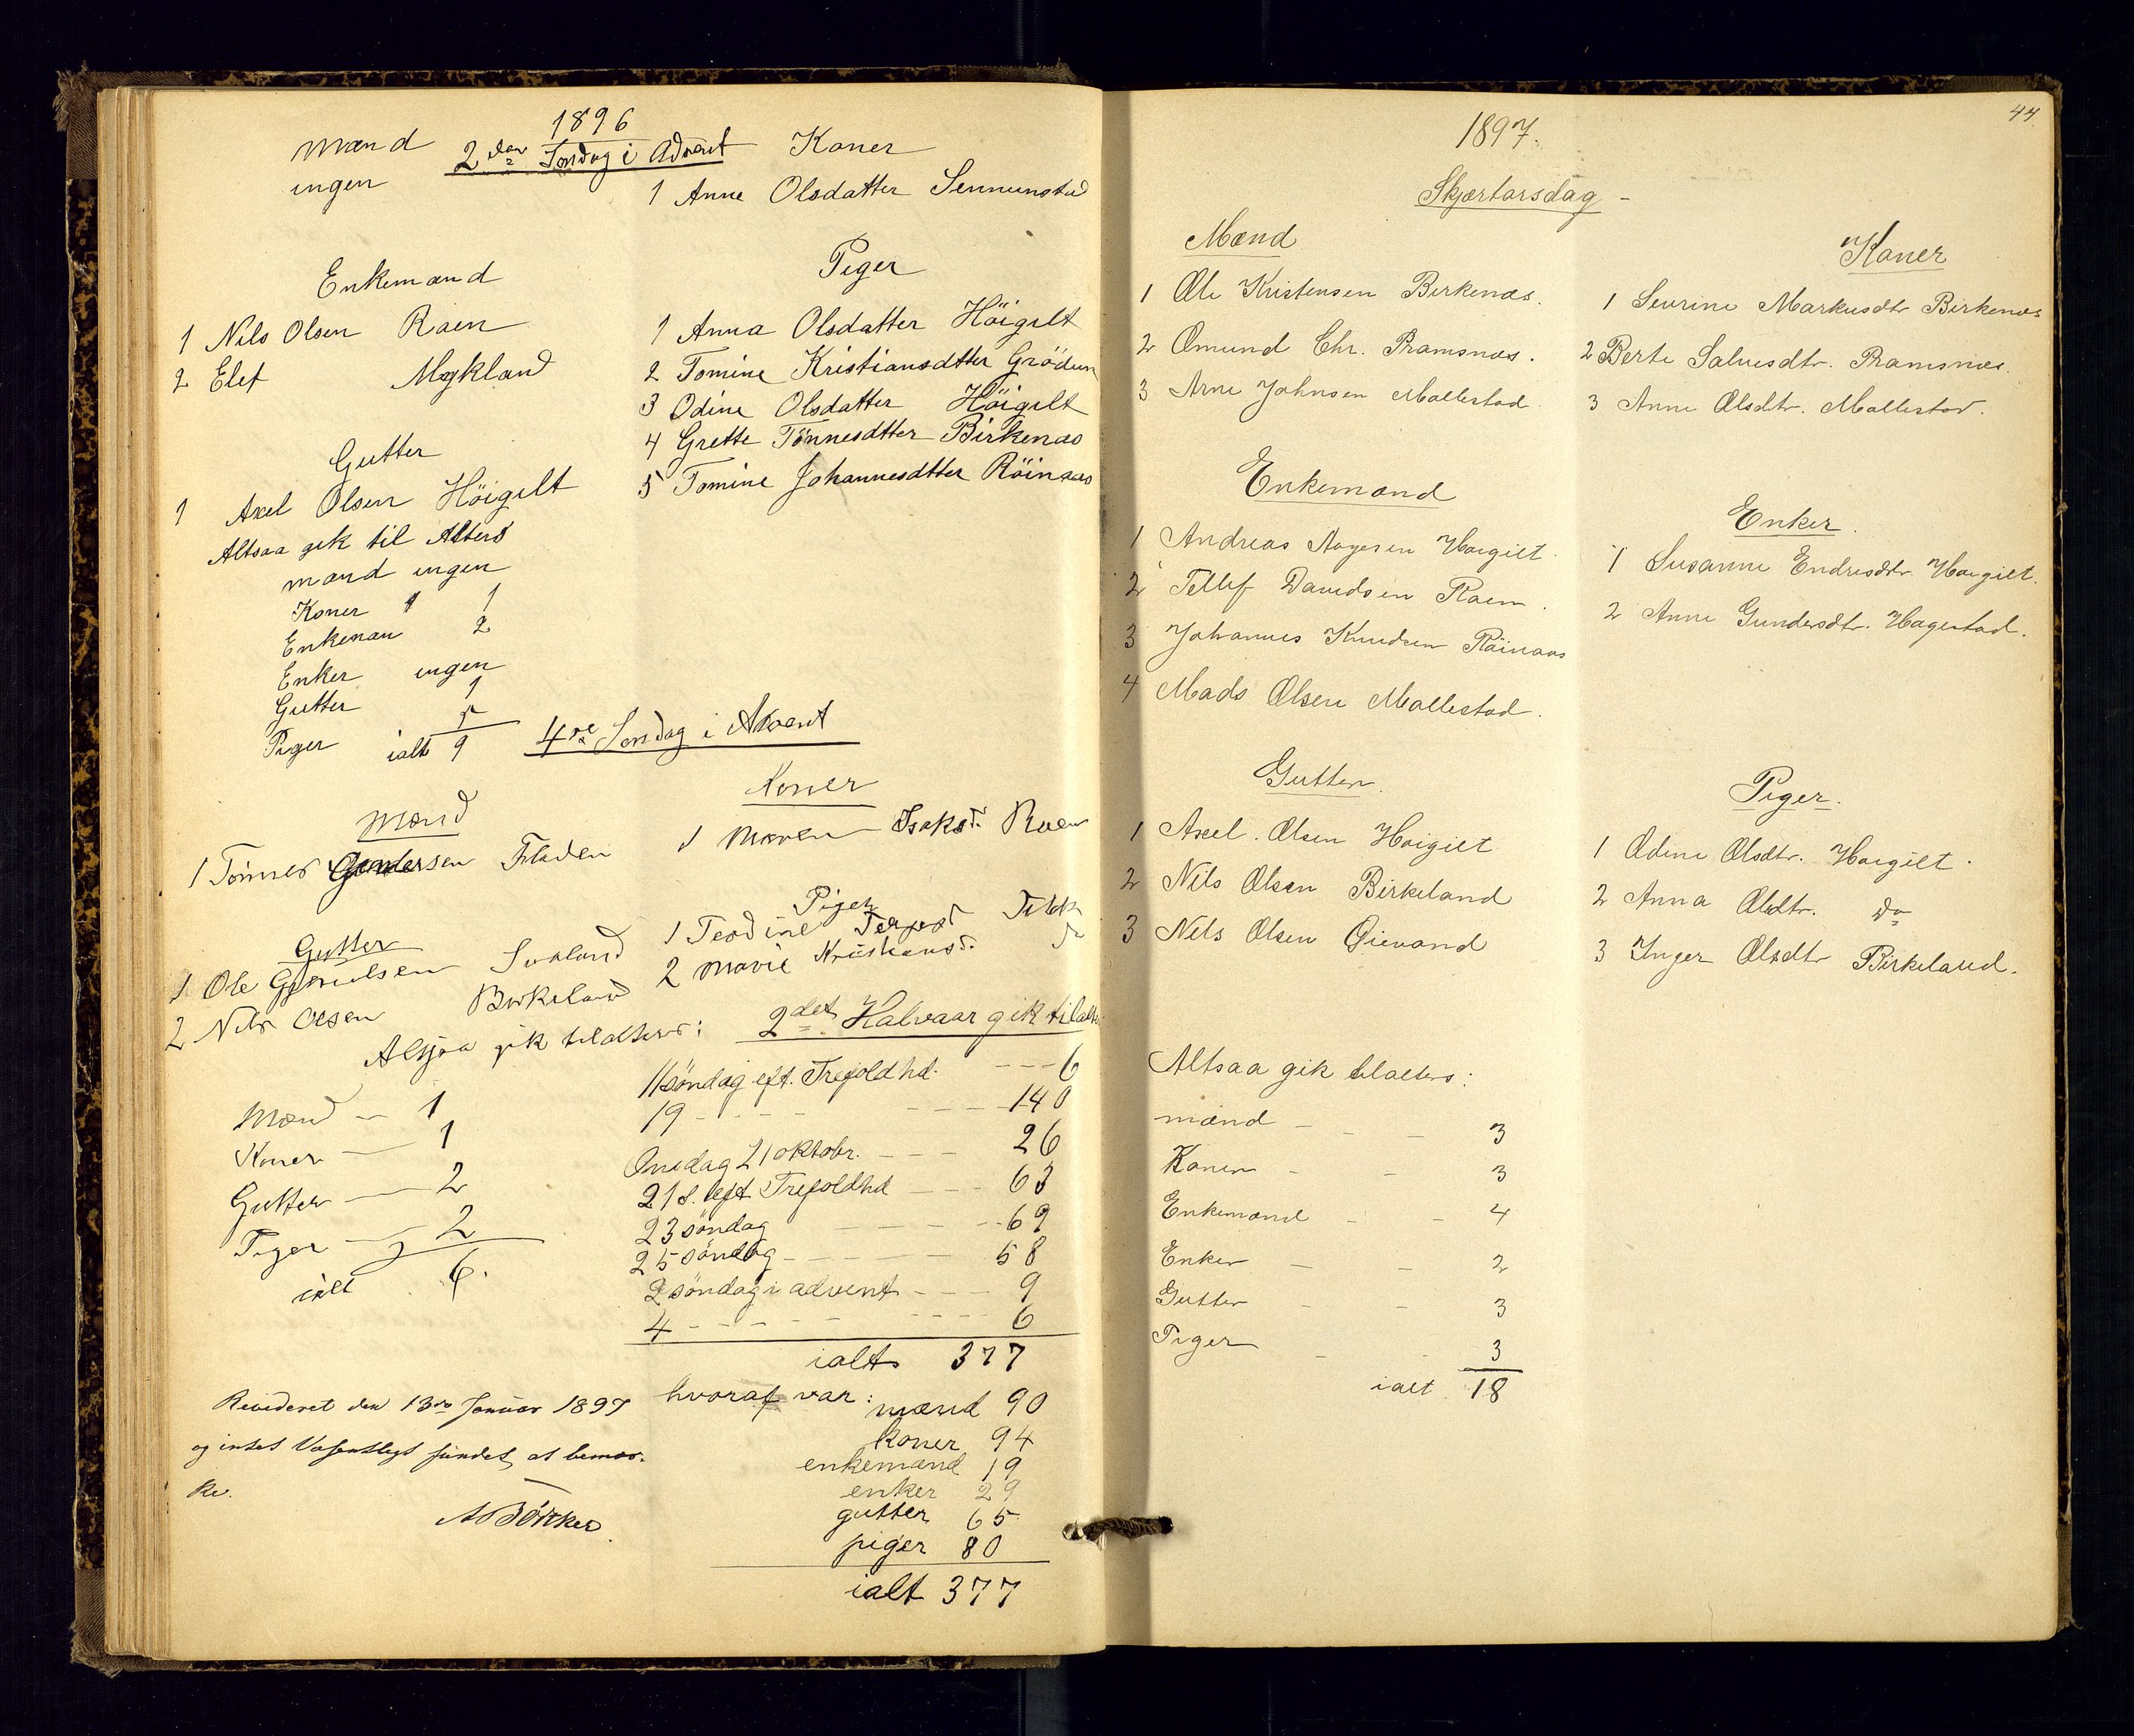 1896
Mænd
2den Søndag i Advent
Koner
ingen
1 Anne Olsdatter Sennunstad
Enkemænd
1 Nils Olsen Raen
2 Elef Mykland
Piger
1 Anna Olsdatter Höigilt
2 Tomine Kristiansdtter Gröden
3 Odine Olsdatter Höigilt
4 Grette Tönnesdtter Birkenæs
5 Tomine Johannesdtter Röinaas
Gutter
1 Axel Olsen Höigilt
Altsaa gik til Alters
mænd ingen
Koner 1
Enkemæn 2
Enker ingen
Gutter 1
Piger 5
ialt 9
4de Søndag i Advent
Mænd
1 Tönnes Gundersen Fladen
Koner
1 Maren Isaksd. Raen
Gutter
1 Ole Svaland
2 Nils Olsen Birkeland
Piger
1 Teodine Terjesd
2 Marie Kristiansd.
Altsaa gik tilalters:
Mænd - 1
Koner - 1
Gutter - 2
Piger - 2
ialt 6.
2det Halvaar gik tilalters
11 söndag eft. Trefoldhd. - - - 6
19 - - - - - - - 140
Onsdag 21 oktobr. - - - 26
21 s. eft Trefoldhd - - - 63
23 söndag - - - - - 69
25 söndag - - - - - 58
2 söndag i advent - - - 9
4 - - - - - - - - - 6
ialt 377
hvoraf var:
mænd 90
koner 94
enkemænd 19
enker 29
gutter 65
piger 80
ialt 377
Revideret den 13de Januar 1897
og intet Væsentligt fundet at bemær-
ke.
44
1897.
Skjærtorsdag -
Mænd
1 Ole Kristensen Birkenæs.
2 Omund Chr. Pramsnæs.
3 Arne Johnsen Mollestad
Koner
1 Sevrine Markusdtr Birkenæs
2 Berte Salvesdtr. Pramsnæs.
3 Anne Olsdtr. Mollestad.
Enkemænd
1 Andreas Aagesen Høigilt.
2 Tellef Davidsen Raen.
3 Johannes Knudsen Röinaas
4 Mads Olsen Mollestad.
Enker.
1 Susanne Endresdtr Høigilt.
2 Anne Gundersdtr. Hagestad.
Gutter.
1 Axel. Olsen Høigilt
2 Nils Olsen Birkeland
3 Nils Olsen Øievand
Piger.
1 Odine Olsdtr. Høigilt.
2 Anna Olsdtr. do
3 Inger Olsdtr Birkeland.
Altsaa gik tilalters:
mænd - - - 3
Koner - - 3
Enkemænd - - 4
Enker - - 2
Gutter - - 3
Piger - - 3
ialt. 18